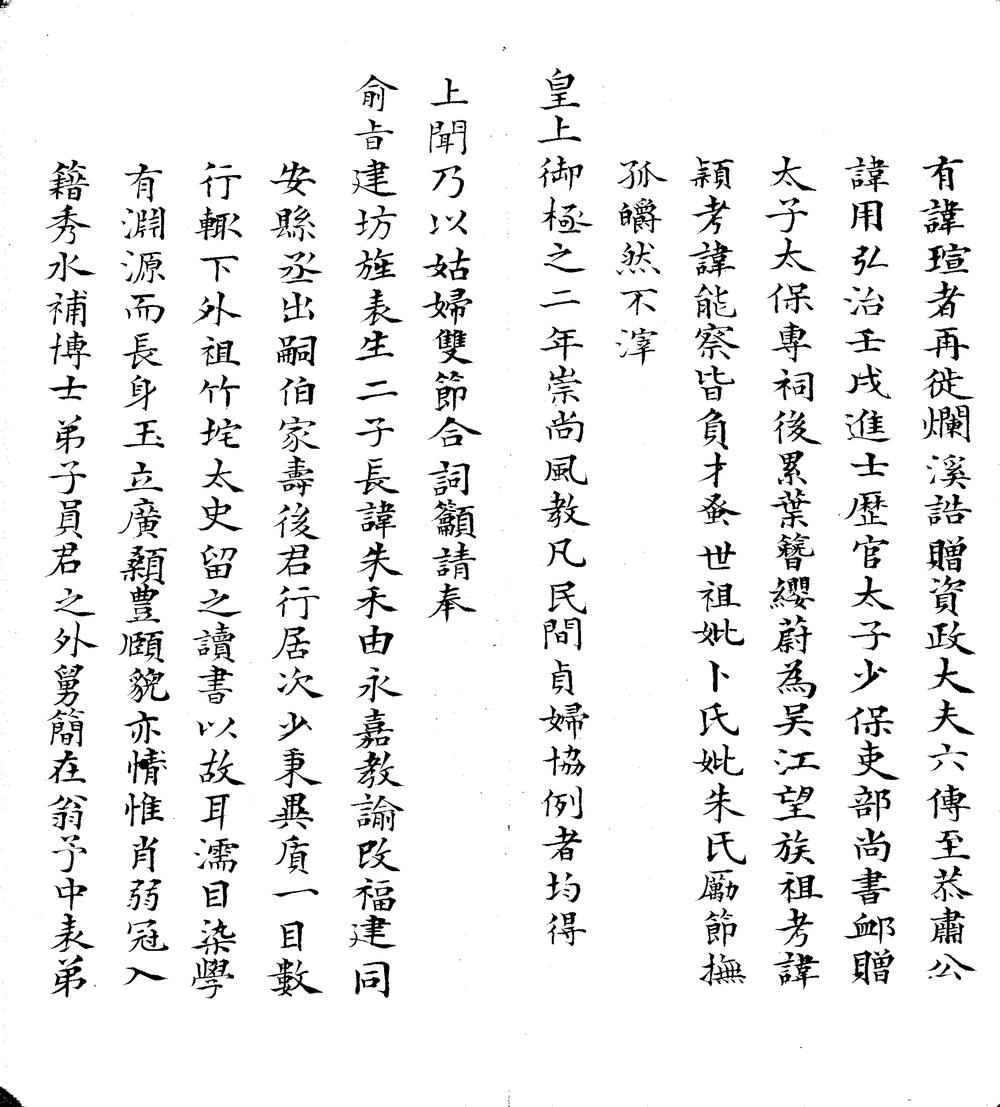 有諱瑄者再徙爛溪誥贈資政大夫六傳至恭肅公
諱用弘治壬戌進士歷官太子少保吏部尚書卹贈
太子太保專祠後累葉簪纓蔚為吴江望族祖考諱
頴考諱能察皆負才蚤世祖妣卜氏妣朱氏勵節撫
孤皭然不滓
皇上御極之二年崇尚風教凡民間貞婦協例者均得
上聞乃以姑婦雙節合詞籲請奉
俞旨建坊旌表生二子長諱朱禾由永嘉教諭改福建同
安縣丞出嗣伯家壽後君行居次少秉異質一目數
行輙下外祖竹垞太史留之讀書以故耳濡目染學
有淵源而長身玉立廣顙豊頤貌亦情惟肖弱冠入
籍秀水補博士弟子員君之外舅簡在翁予中表弟